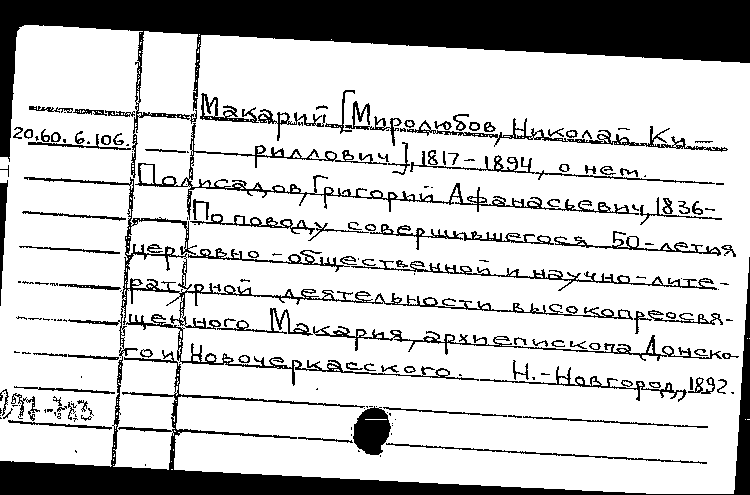 Макарий [Миролюбов, Николай Ки-
20.60.6.106.
риллович], 1817-1894, о нем.
Полисадов, Григорий Афанасьевич, 1836-
По поводу совершившегося 50-летия
церковно-общественной и научно-лите-
ратурной деятельности высокопреосвя-
щенного Макария, архиепископа Донско-
го и Новочеркасского. Н.-Новгород, 1892.
297-783